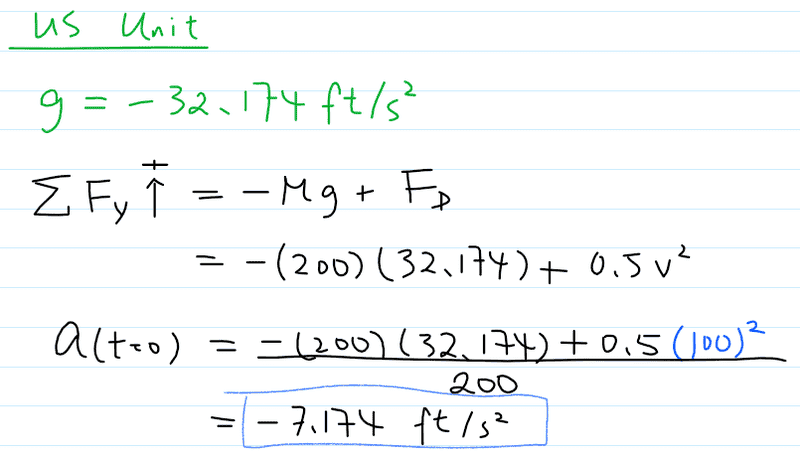 US Unit
g = -32.174 ft/s²
ΣFy ↑+ = -Mg + FD
= -(200)(32.174) + 0.5v²
a(t=0) = -(200)(32.174) + 0.5(100)² / 200
= -7.174 ft/s²